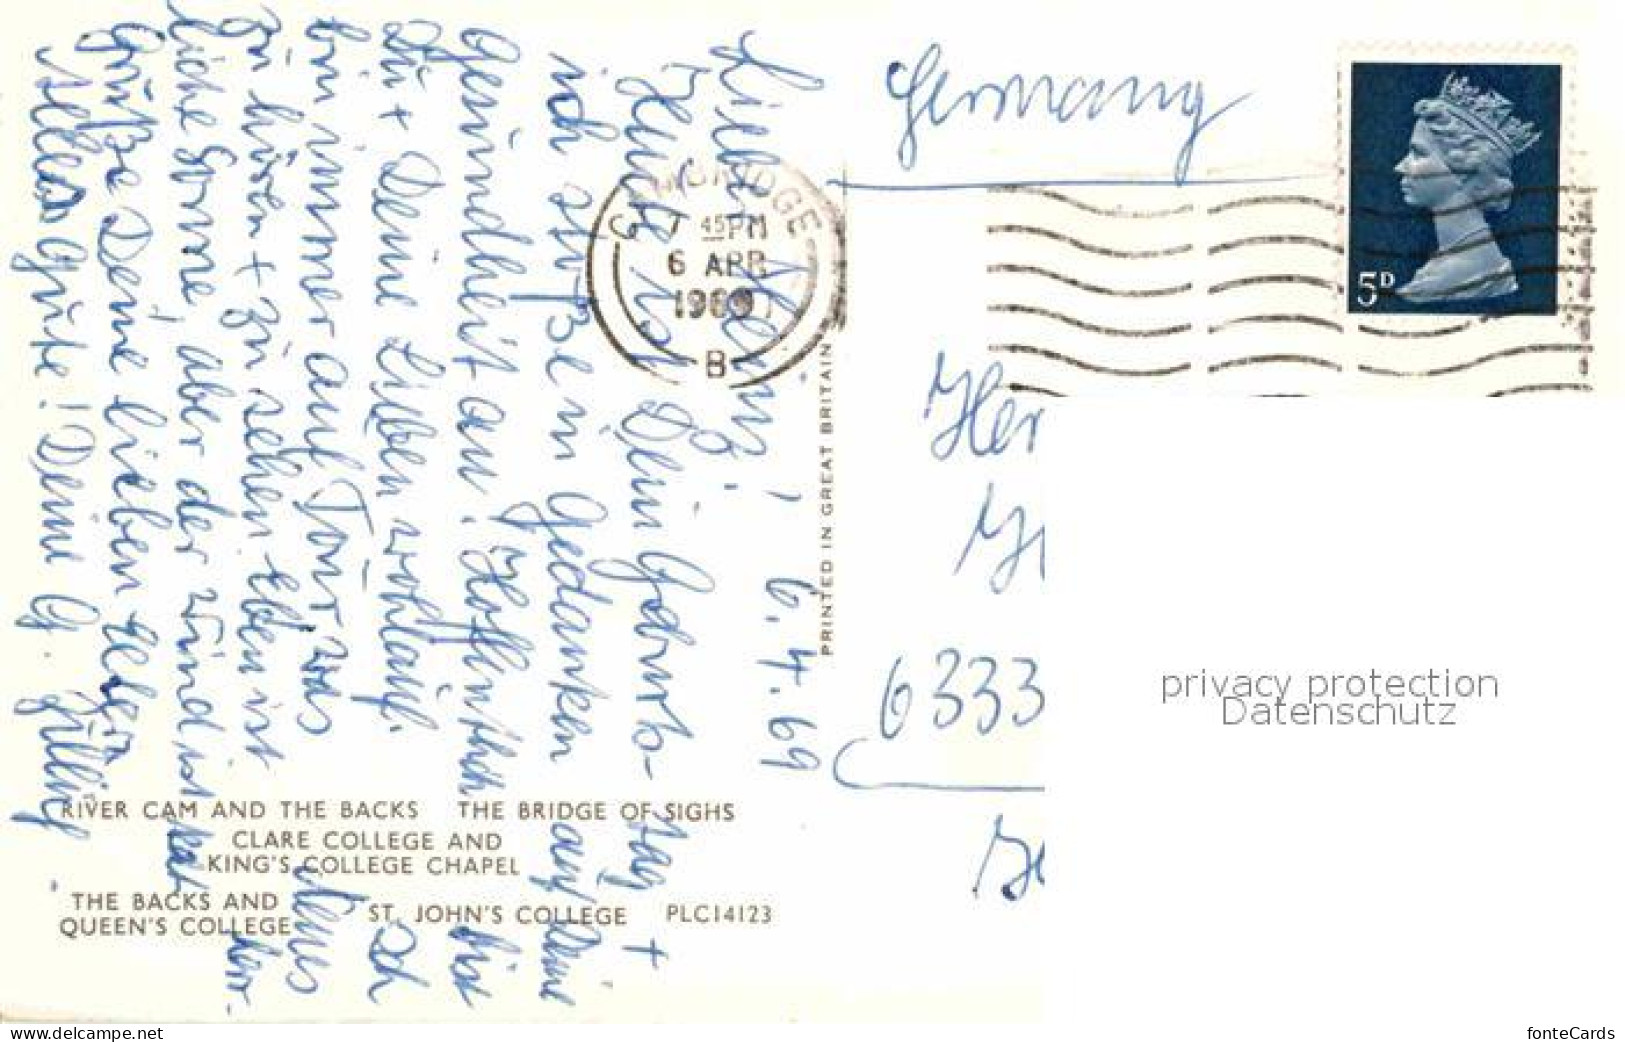 Germany
5D
CAMBRIDGE
7 45 PM
6 APR
1969
B
PRINTED IN GREAT BRITAIN
6.4.69
Lieber
Heute ist Dein Geburtstag +
ich stoße in Gedanken auf Deine
Gesundheit an. Hoffentlich bist
Du + Deine Lieben wohlauf. Ich
bin immer auf Tour, was Neues
zu hören + zu sehen. Eben ist herr-
liche Sonne, aber der Wind ist kalt
Grüße Deine lieben Eltern
Alles Gute! Deine G.
Her
6333
RIVER CAM AND THE BACKS THE BRIDGE OF SIGHS
CLARE COLLEGE AND
KING'S COLLEGE CHAPEL
THE BACKS AND
QUEEN'S COLLEGE
ST. JOHN'S COLLEGE PLC14123
privacy protection
Datenschutz
www.delcampe.net
fonteCards